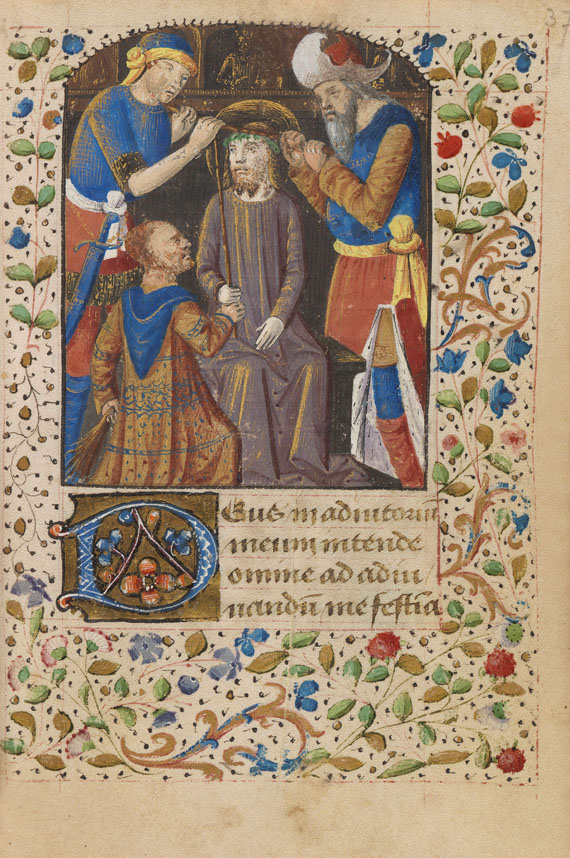 37
Deus in adiutoriu
meum intende
omine ad adiu
uandū me festia